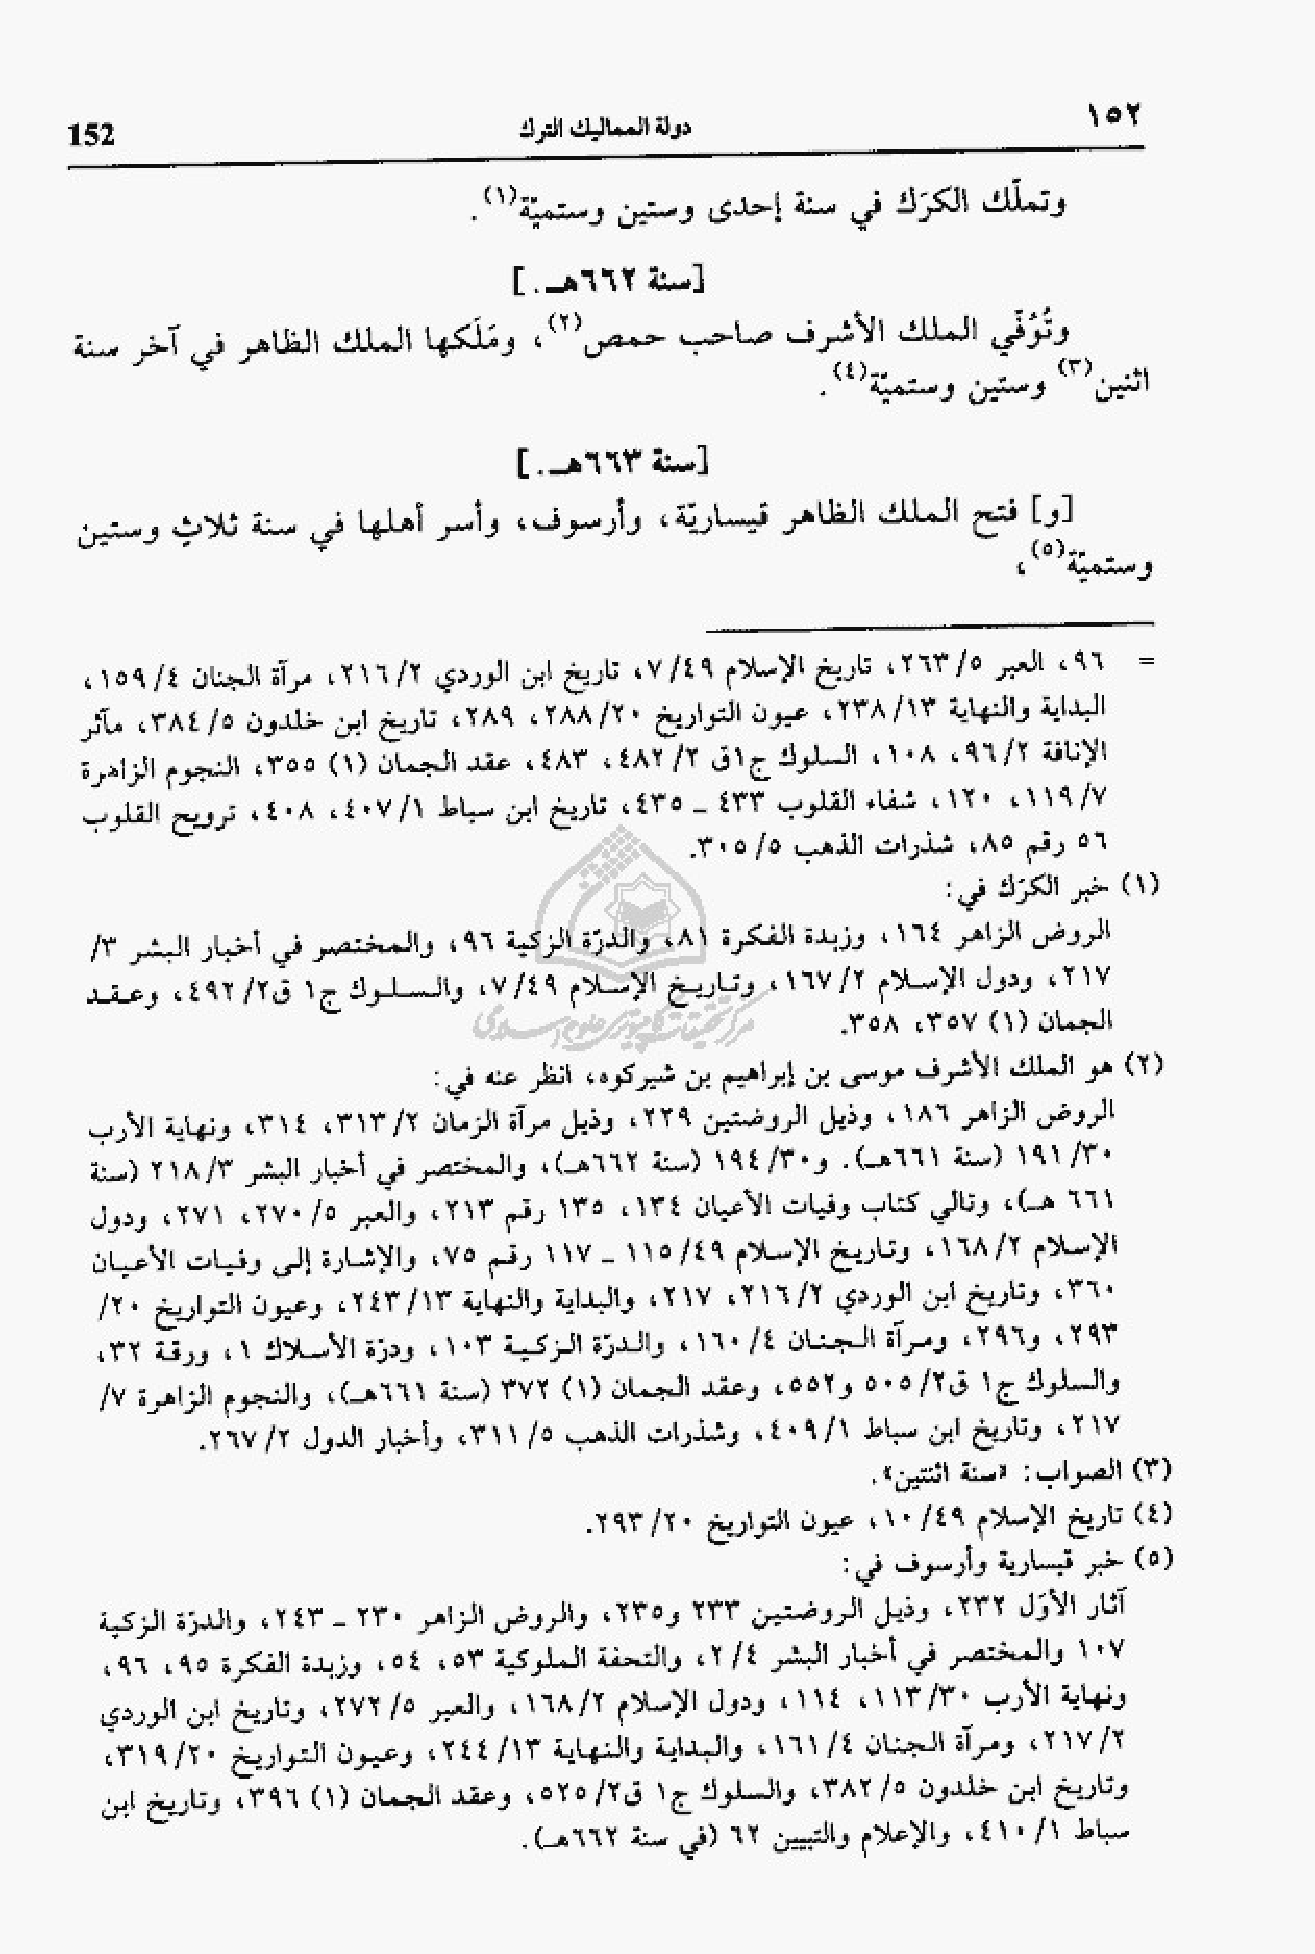 ١٥٢
دولة المماليك الترك
152
وتملّك الكرَك في سنة إحدى وستين وستميّة(١).
[سنة ٦٦٢هـ.]
وتُوُفّي الملك الأشرف صاحب حمص(٢)، ومَلَكها الملك الظاهر في آخر سنة
اثنين(٣) وستين وستميّة(٤).
[سنة ٦٦٣هـ.]
[و] فتح الملك الظاهر قيساريّة، وأرسوف، وأسر أهلها في سنة ثلاث وستين
وستميّة(٥)،
= ٩٦، العبر ٥/ ٢٦٣، تاريخ الإسلام ٤٩/ ٧، تاريخ ابن الوردي ٢/ ٢١٦، مرآة الجنان ٤/ ١٥٩،
البداية والنهاية ١٣/ ٢٣٨، عيون التواريخ ٢٠/ ٢٨٨، ٢٨٩، تاريخ ابن خلدون ٥/ ٣٨٤، مآثر
الإنافة ٢/ ٩٦، ١٠٨، السلوك ج١ق ٢/ ٤٨٢، ٤٨٣، عقد الجمان (١) ٣٥٥، النجوم الزاهرة
٧/ ١١٩، ١٢٠، شفاء القلوب ٤٣٣ ـ ٤٣٥، تاريخ ابن سباط ١/ ٤٠٧، ٤٠٨، ترويح القلوب
٥٦ رقم ٨٥، شذرات الذهب ٥/ ٣٠٥.
(١) خبر الكرَك في:
الروض الزاهر ١٦٤، وزبدة الفكرة ٨١، والدرّة الزكية ٩٦، والمختصر في أخبار البشر ٣/
٢١٧، ودول الإسلام ٢/ ١٦٧، وتاريخ الإسلام ٤٩/ ٧، والسلوك ج١ ق٢/ ٤٩٢، وعقد
الجمان (١) ٣٥٧، ٣٥٨.
مركز تحقيقات كامپيوترى علوم اسلامى
(٢) هو الملك الأشرف موسى بن إبراهيم بن شيركوه، انظر عنه في:
الروض الزاهر ١٨٦، وذيل الروضتين ٢٢٩، وذيل مرآة الزمان ٢/ ٣١٣، ٣١٤، ونهاية الأرب
٣٠/ ١٩١ (سنة ٦٦١هـ). و٣٠/ ١٩٤ (سنة ٦٦٢هـ)، والمختصر في أخبار البشر ٣/ ٢١٨ (سنة
٦٦١ هـ)، وتالي كتاب وفيات الأعيان ١٣٤، ١٣٥ رقم ٢١٣، والعبر ٥/ ٢٧٠، ٢٧١، ودول
الإسلام ٢/ ١٦٨، وتاريخ الإسلام ٤٩/ ١١٥ ـ ١١٧ رقم ٧٥، والإشارة إلى وفيات الأعيان
٣٦٠، وتاريخ ابن الوردي ٢/ ٢١٦، ٢١٧، والبداية والنهاية ١٣/ ٢٤٣، وعيون التواريخ ٢٠/
٢٩٣، و٢٩٦، ومرآة الجنان ٤/ ١٦٠، والدرّة الزكية ١٠٣، ودرّة الأسلاك ١، ورقة ٣٢،
والسلوك ج١ ق٢/ ٥٠٥ و٥٥٢، وعقد الجمان (١) ٣٧٢ (سنة ٦٦١هـ)، والنجوم الزاهرة ٧/
٢١٧، وتاريخ ابن سباط ١/ ٤٠٩، وشذرات الذهب ٥/ ٣١١، وأخبار الدول ٢/ ٢٦٧.
(٣) الصواب: «سنة اثنتين».
(٤) تاريخ الإسلام ٤٩/ ١٠، عيون التواريخ ٢٠/ ٢٩٣.
(٥) خبر قيسارية وأرسوف في:
آثار الأوّل ٢٣٢، وذيل الروضتين ٢٣٣ و٢٣٥، والروض الزاهر ٢٣٠ ـ ٢٤٣، والدرّة الزكية
١٠٧ والمختصر في أخبار البشر ٤/ ٢، والتحفة الملوكية ٥٣، ٥٤، وزبدة الفكرة ٩٥، ٩٦،
ونهاية الأرب ٣٠/ ١١٣، ١١٤، ودول الإسلام ٢/ ١٦٨، والعبر ٥/ ٢٧٢، وتاريخ ابن الوردي
٢/ ٢١٧، ومرآة الجنان ٤/ ١٦١، والبداية والنهاية ١٣/ ٢٤٤، وعيون التواريخ ٢٠/ ٣١٩،
وتاريخ ابن خلدون ٥/ ٣٨٢، والسلوك ج١ ق٢/ ٥٢٥، وعقد الجمان (١) ٣٩٦، وتاريخ ابن
سباط ١/ ٤١٠، والإعلام والتبيين ٦٢ (في سنة ٦٦٢هـ).